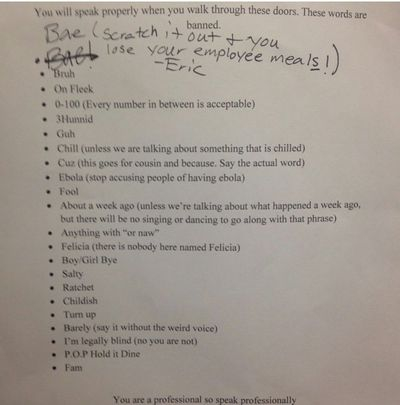 You will speak properly when you walk through these doors. These words are
banned.
Bae (scratch it out & you
lose your employee meals!)
-Eric
• Bruh
• On Fleek
• 0-100 (Every number in between is acceptable)
• 3Hunnid
• Guh
• Chill (unless we are talking about something that is chilled)
• Cuz (this goes for cousin and because. Say the actual word)
• Ebola (stop accusing people of having ebola)
• Fool
• About a week ago (unless we're talking about what happened a week ago,
but there will be no singing or dancing to go along with that phrase)
• Anything with "or naw"
• Felicia (there is nobody here named Felicia)
• Boy/Girl Bye
• Salty
• Ratchet
• Childish
• Turn up
• Barely (say it without the weird voice)
• I'm legally blind (no you are not)
• P.O.P Hold it Dine
• Fam
You are a professional so speak professionally